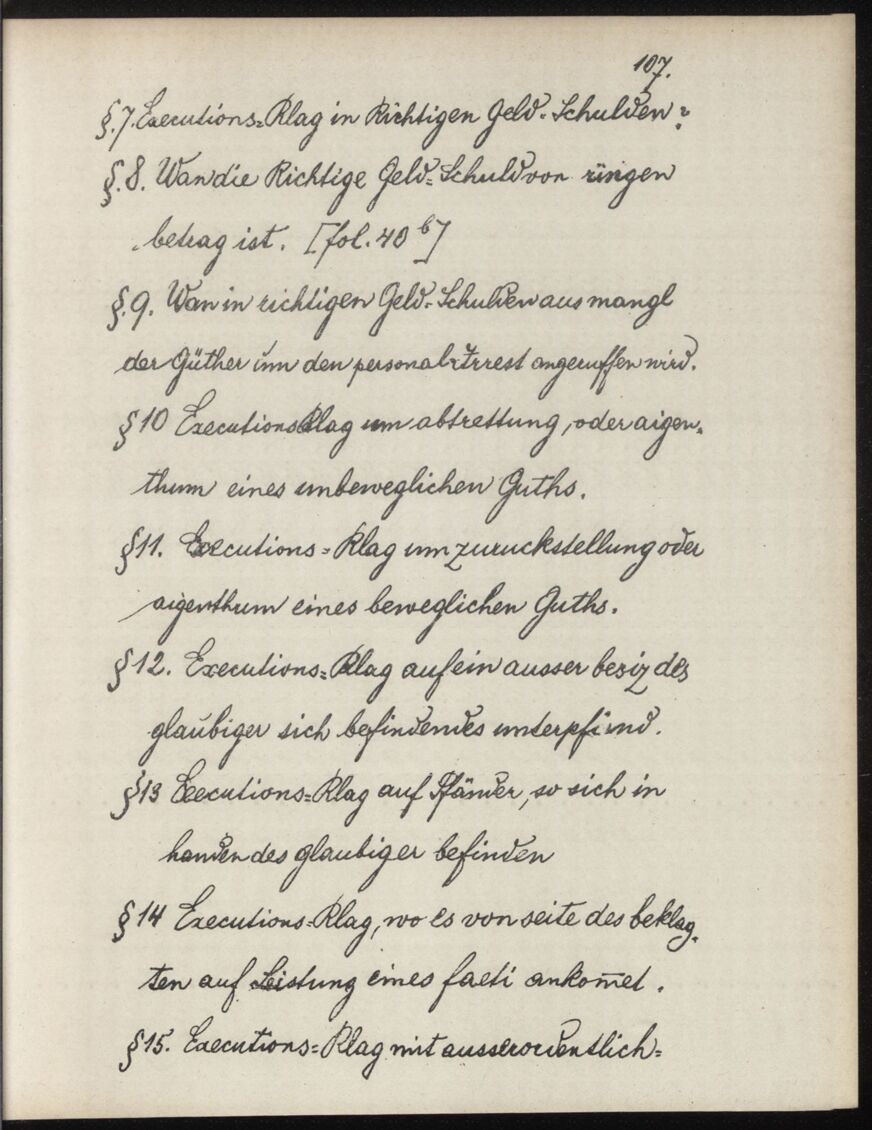 107.
§.7. Executions=Klag in Richtigen Geld=Schulden?
§.8. Wan die Richtige Geld=Schuld von ringen
betrag ist. [fol. 40 b]
§.9. Wan in richtigen Geld=Schulden aus mangl
der Güther ùm den personal=Arrest angeruffen wird.
§10 Executions Klag um abtrettung, oder aigen=
thum eines unbeweglichen Guths.
§11. Executions=Klag um zuruckstellung oder
aigenthum eines beweglichen Guths.
§12. Executions=Klag auf ein ausser besiz des
glaubiger sich befindendes unterpfand.
§13 Executions=Klag auf Pfänder, so sich in
handen des glaubiger befinden
§14 Executions=Klag, wo es von seite des beklag=
ten auf Leistung eines facti ankom̄et.
§15. Executions=Klag mit ausserordentlich=